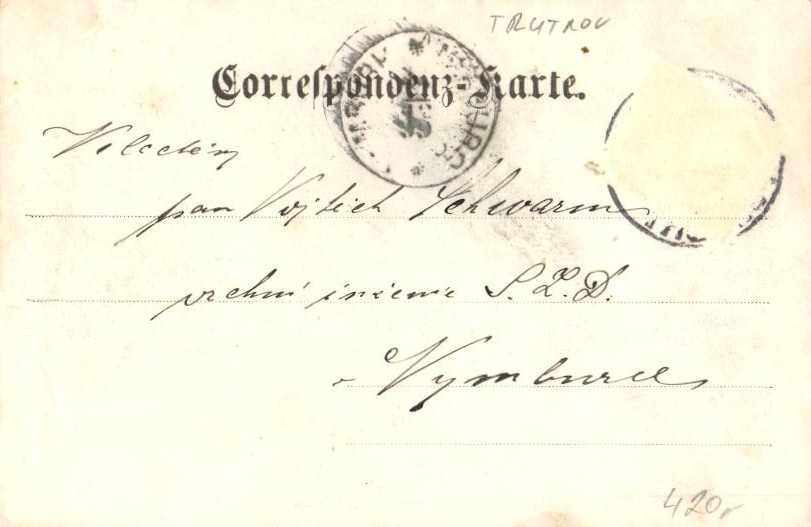 TRUTNOV
Correspondenz-Karte.
pan Vojtěch Schwarm
vrchní inženir S.Z.D.
Nymburce
420,